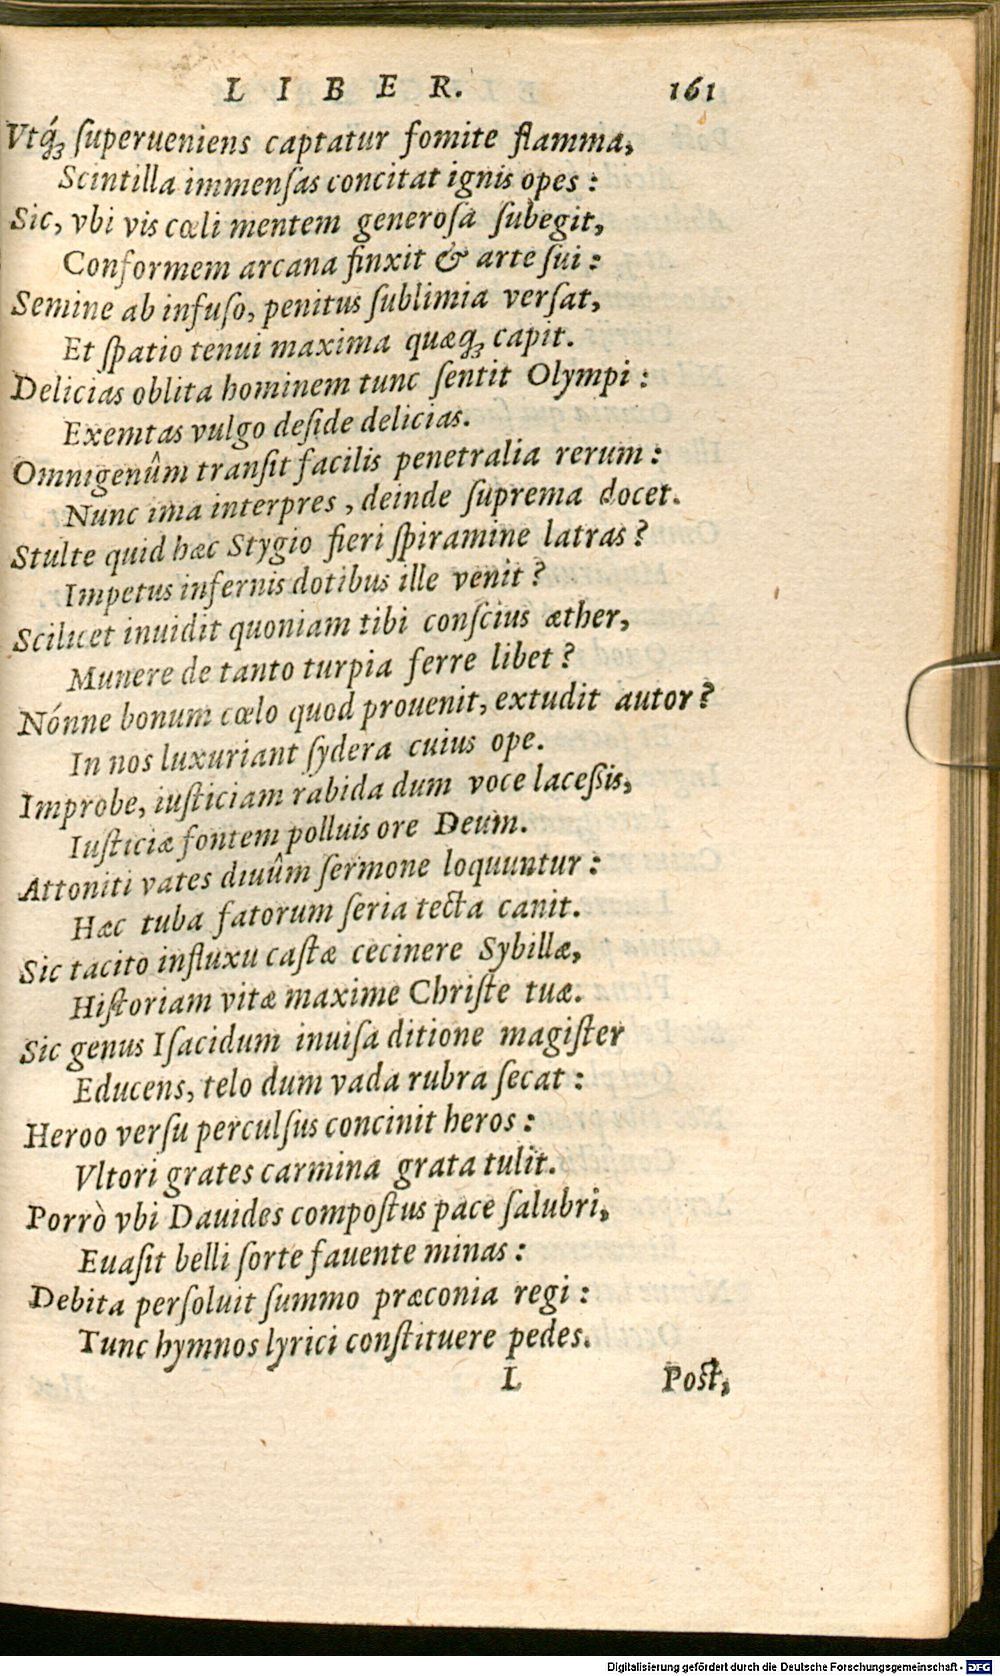 LIBER. 161
Vtq́ꝫ ſuperueniens captatur fomite flamma,
Scintilla immenſas concitat ignis opes :
Sic, vbi vis cœli mentem generoſa ſubegit,
Conformem arcana finxit & arte ſui :
Semine ab infuſo, penitus ſublimia verſat,
Et ſpatio tenui maxima quæqꝫ capit.
Delicias oblita hominem tunc ſentit Olympi :
Exemtas vulgo deſide delicias.
Omnigenûm tranſit facilis penetralia rerum :
Nunc ima interpres, deinde ſuprema docet.
Stulte quid hæc Stygio fieri ſpiramine latras ?
Impetus infernis dotibus ille venit ?
Scilicet inuidit quoniam tibi conſcius æther,
Munere de tanto turpia ferre libet ?
Nónne bonum cœlo quod prouenit, extudit autor ?
In nos luxuriant ſydera cuius ope.
Improbe, iuſticiam rabida dum voce laceſsis,
Iuſticiæ fontem polluis ore Deum.
Attoniti vates diuûm ſermone loquuntur :
Hæc tuba fatorum ſeria tecta canit.
Sic tacito influxu caſtæ cecinere Sybillæ,
Hiſtoriam vitæ maxime Chriſte tuæ.
Sic genus Iſacidum inuiſa ditione magiſter
Educens, telo dum vada rubra ſecat :
Heroo verſu perculſus concinit heros :
Vltori grates carmina grata tulit.
Porrò vbi Dauides compoſtus pace ſalubri,
Euaſit belli ſorte fauente minas :
Debita perſoluit ſummo præconia regi :
Tunc hymnos lyrici conſtituere pedes.
L Poſt,
Digitalisierung gefördert durch die Deutsche Forschungsgemeinschaft - DFG